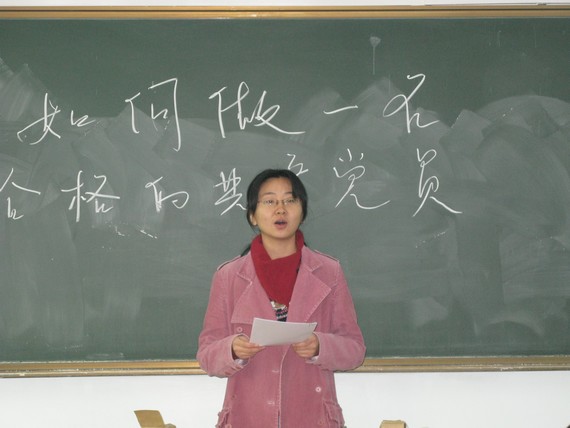 如何做一名
合格的共产党员